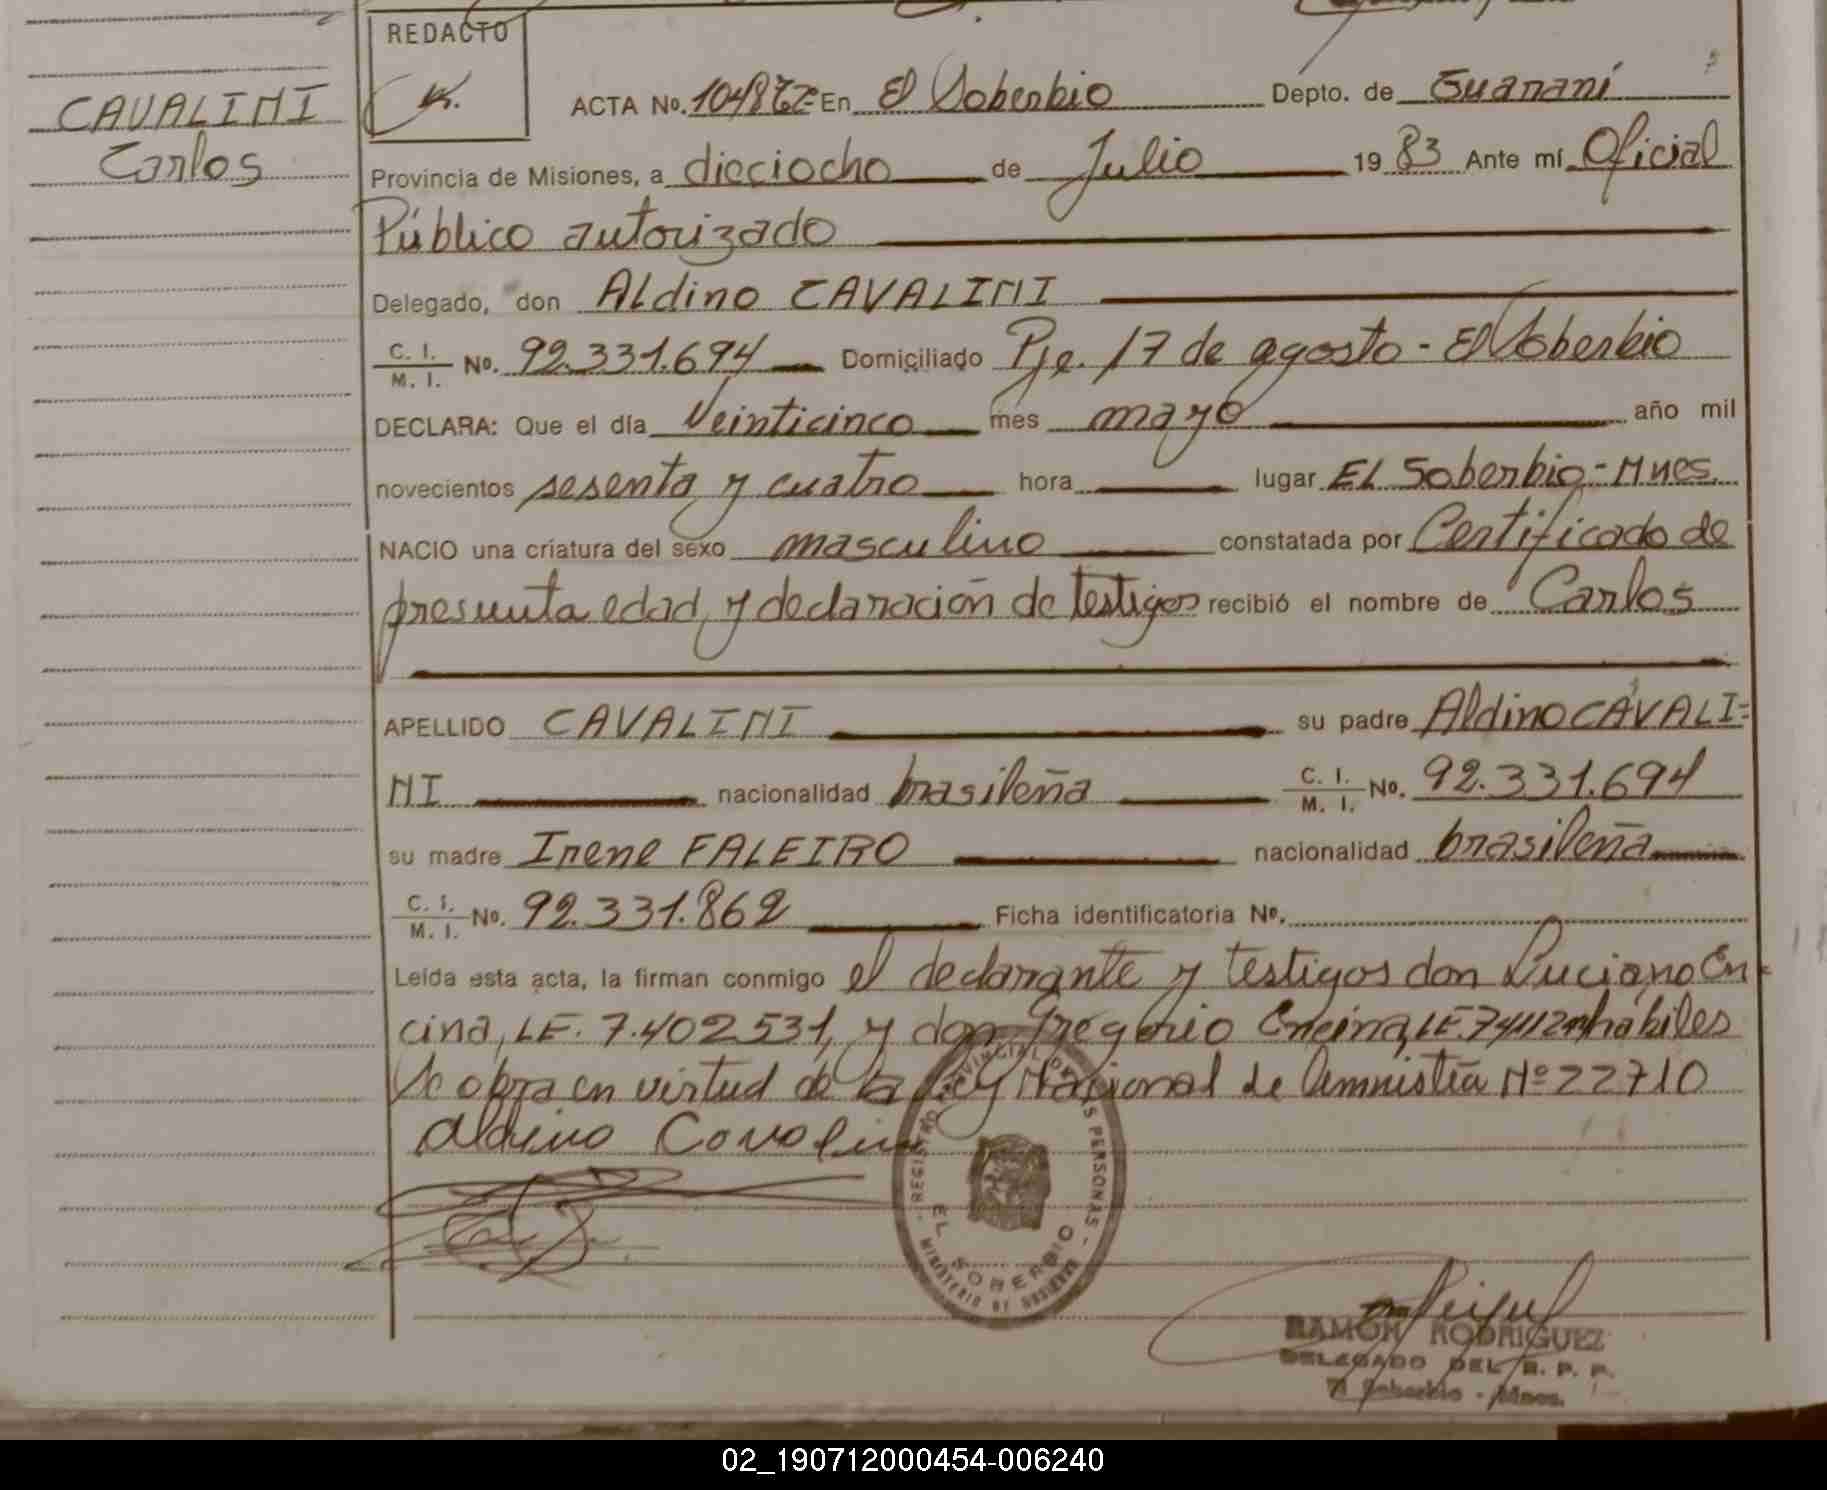 REDACTO
CAVALINI
Carlos
ACTA No. En El Soberbio Depto. de Guaraní
Provincia de Misiones, a dieciocho de Julio 19 83 Ante mí Oficial
Público autorizado
Delegado, don Aldino CAVALINI
C. I. / M. I. No. 92.331.694 Domiciliado Pje. 17 de agosto - El Soberbio
DECLARA: Que el día Veinticinco mes mayo año mil
novecientos sesenta y cuatro hora lugar EL Soberbio - Mnes.
NACIO una criatura del sexo masculino constatada por Certificado de
presunta edad, y declaración de testigos recibió el nombre de Carlos
APELLIDO CAVALINI su padre Aldino CAVALI=
NI nacionalidad brasileña C. I. / M. I. No. 92.331.694
su madre Irene FALEIRO nacionalidad brasileña
C. I. / M. I. No. 92.331.862 Ficha identificatoria No.
Leída esta acta, la firman conmigo el declarante y testigos don Luciano En-
cina, LE. 7.402531, y don Gregorio Encina, LE. hábiles
Se obra en virtud de la Ley Nacional de Amnistía Nº 22710
Aldino
REGISTRO PROVINCIAL DE LAS PERSONAS
EL SOBERBIO
MINISTERIO DE GOBIERNO
RAMON RODRIGUEZ
DELEGADO DEL R. P. P.
El Soberbio - Mnes.
02_190712000454-006240